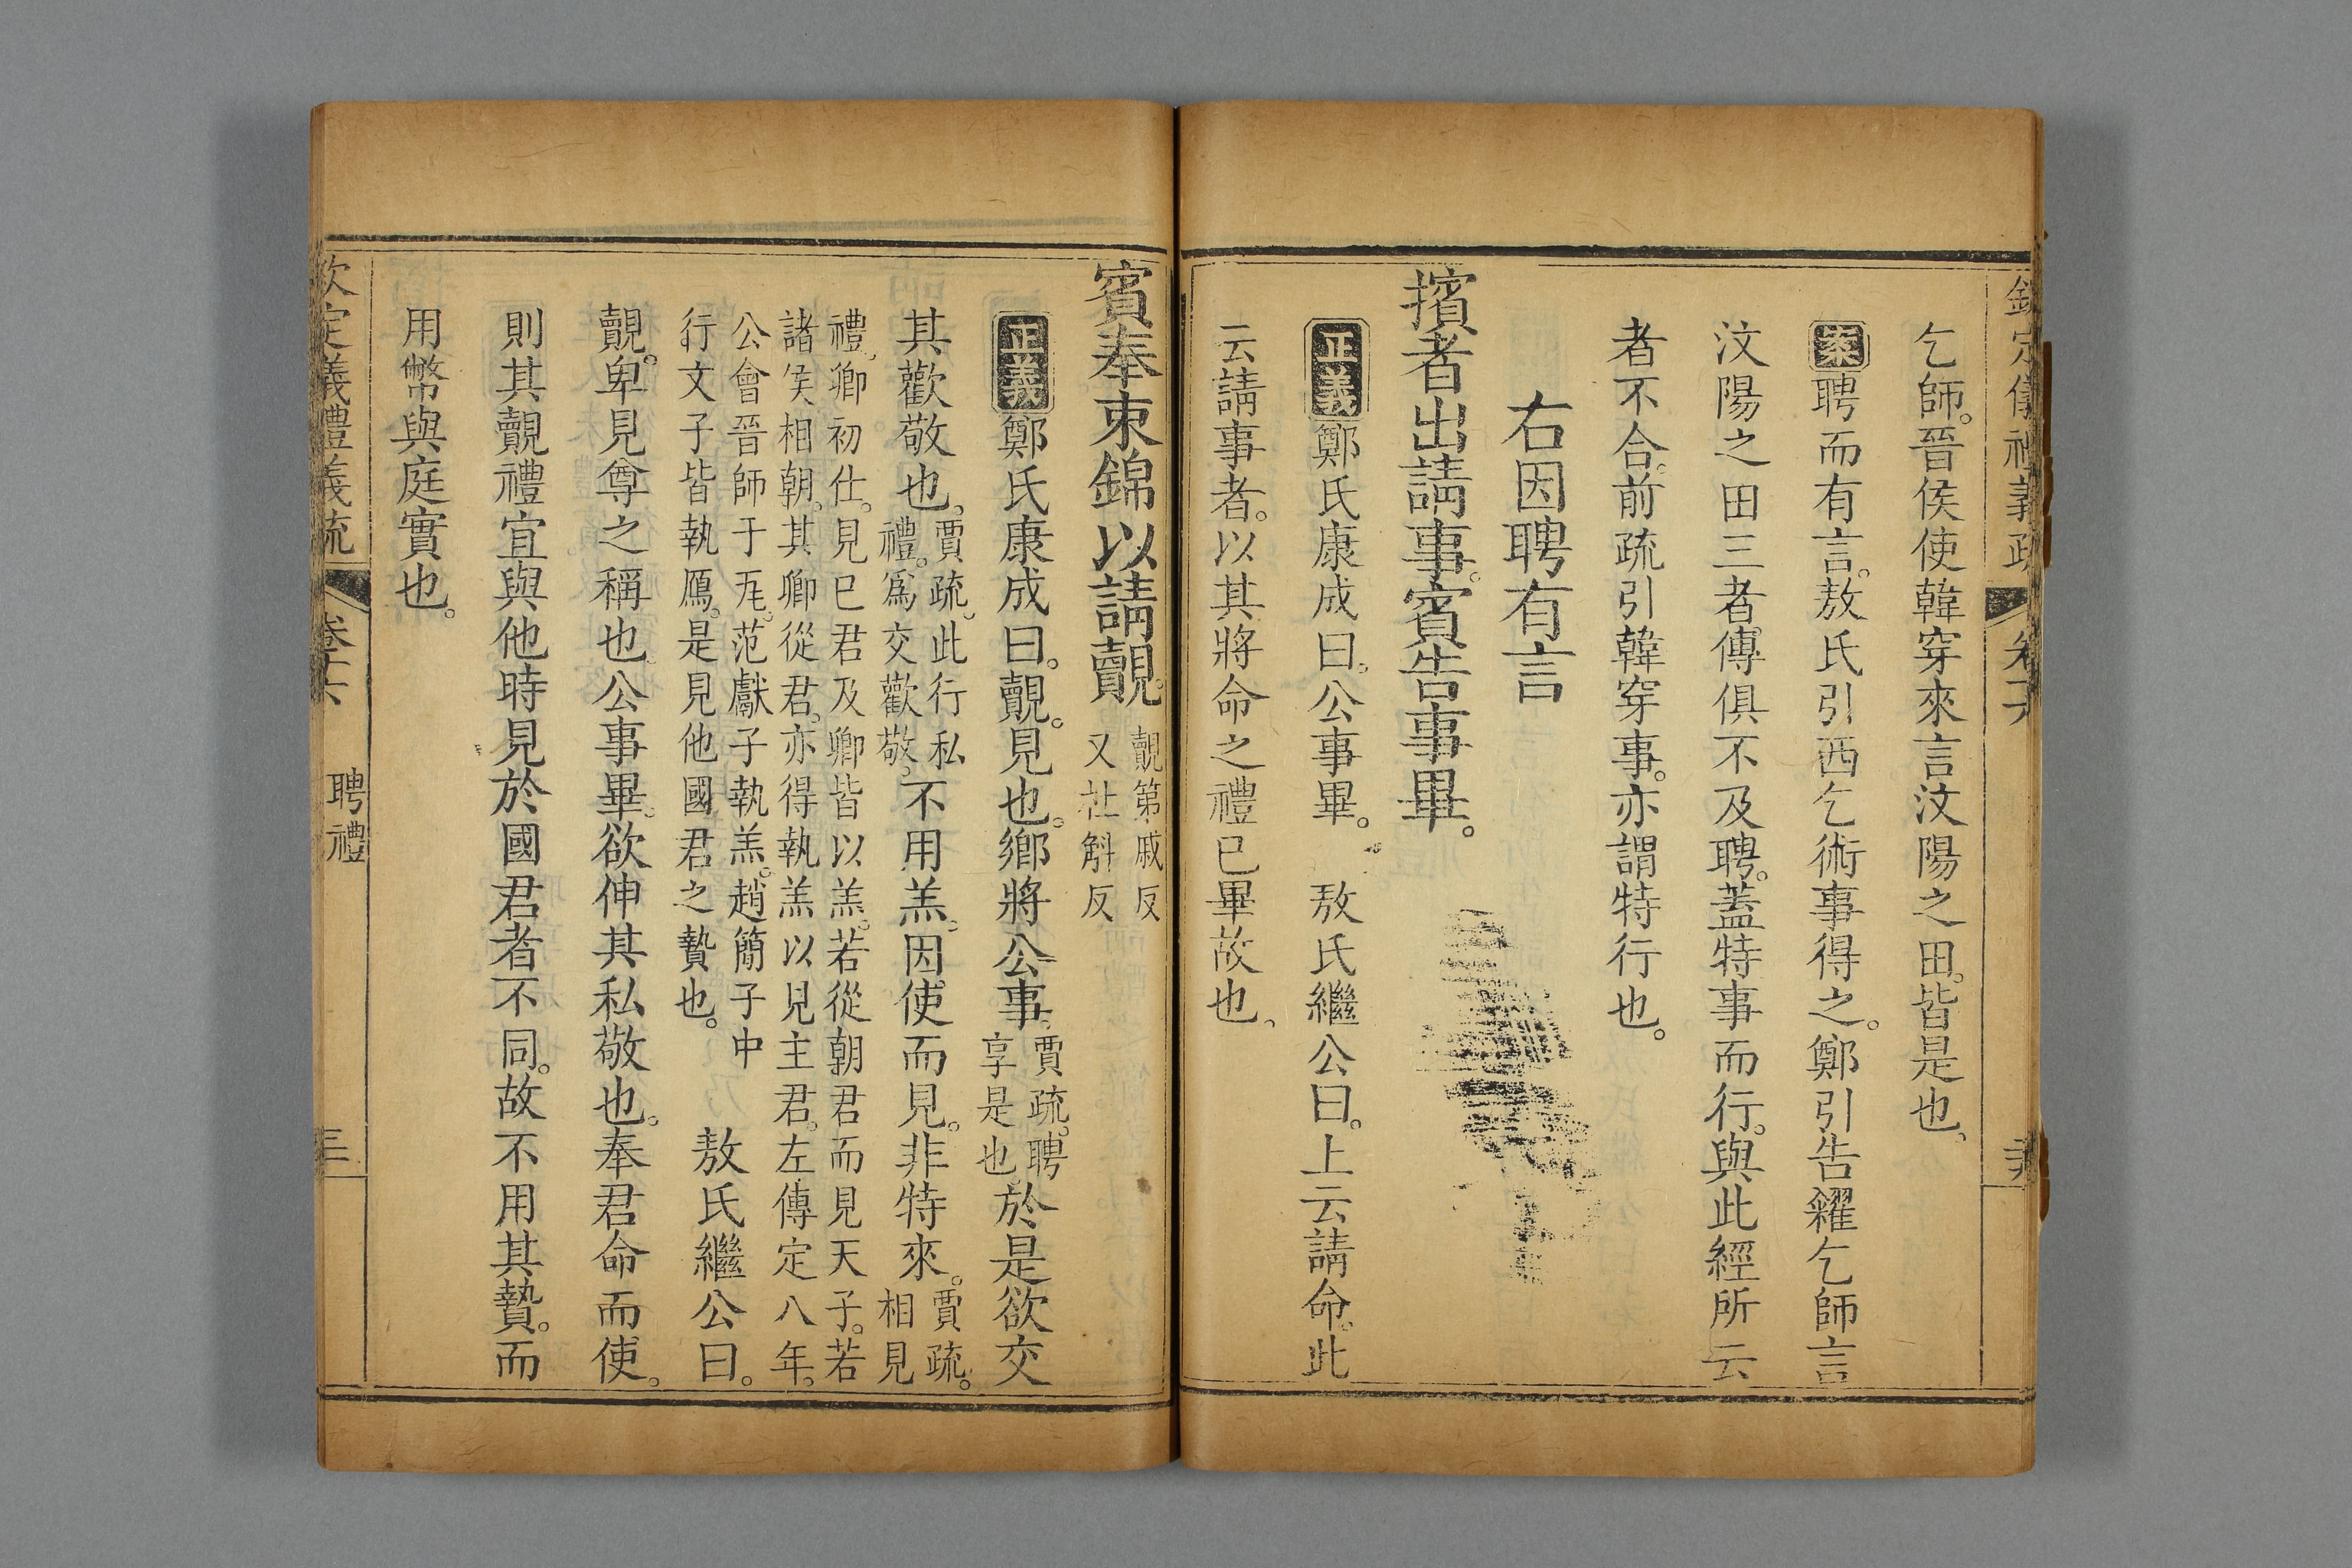 乞師。晉侯使韓穿來言汶陽之田。皆是也。
案聘而有言。敖氏引西乞術事得之。鄭引告糴乞師言
汶陽之田三者。傳俱不及聘。蓋特事而行。與此經所云
者不合。前疏引韓穿事。亦謂特行也。
右因聘有言
擯者出請事。賓告事畢。
正義鄭氏康成曰。公事畢。 敖氏繼公曰。上云請命。此
云請事者。以其將命之禮已畢故也。
賓奉束錦以請覿。覿第戚反
又杜斛反
正義鄭氏康成曰。覿。見也。鄉將公事。賈疏。聘
享是也。於是欲交
其歡敬也。賈疏。此行私
禮。爲交歡敬。不用羔。因使而見。非特來。賈疏。
相見
禮。卿初仕。見已君及卿皆以羔。若從朝君而見天子。若
諸侯相朝。其卿從君。亦得執羔以見主君。左傳定八年。
公會晉師于瓦。范獻子執羔。趙簡子中
行文子皆執鴈。是見他國君之贄也。
敖氏繼公曰。
覿。卑見尊之稱也。公事畢。欲伸其私敬也。奉君命而使。
則其覿禮宜與他時見於國君者不同。故不用其贄。而
用幣與庭實也。
欽定儀禮義疏 卷十六 聘禮